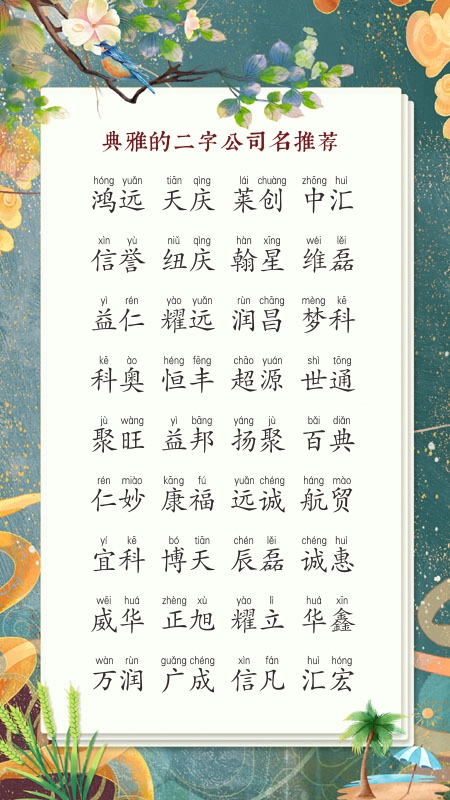 典雅的二字公司名推荐
hóng yuǎn tiān qìng lái chuàng zhōng huì
鸿远 天庆 莱创 中汇
xìn yù niǔ qìng hàn xīng wéi lěi
信誉 纽庆 翰星 维磊
yì rén yào yuǎn rùn chāng mèng kē
益仁 耀远 润昌 梦科
kē ào héng fēng chāo yuán shì tōng
科奥 恒丰 超源 世通
jù wàng yì bāng yáng jù bǎi diǎn
聚旺 益邦 扬聚 百典
rén miào kāng fú yuǎn chéng háng mào
仁妙 康福 远诚 航贸
yí kē bó tiān chén lěi chéng huì
宜科 博天 辰磊 诚惠
wēi huá zhèng xù yào lì huá xīn
威华 正旭 耀立 华鑫
wàn rùn guǎng chéng xìn fán huì hóng
万润 广成 信凡 汇宏